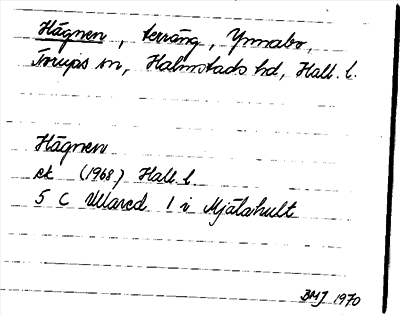 Hägnen, terräng, Ynnabo,
Torups sn, Halmstads hd, Hall. l.
Hägnen
ek (1968) Hall. l.
5 C Ullared 1 i Mjälahult
BMJ 1970